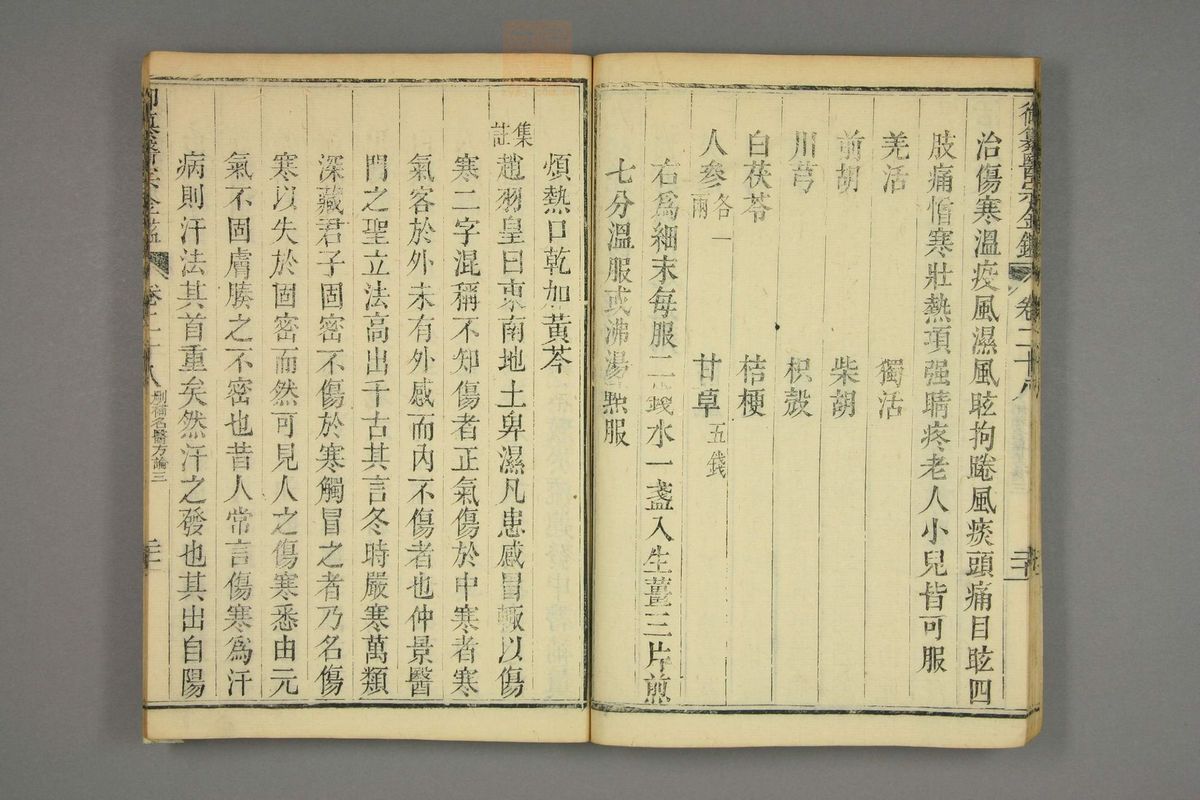 御纂醫宗金鑑 卷二十八
治傷寒溫疫風濕風眩拘踡風痰頭痛目眩四
肢痛憎寒壯熱項强睛疼老人小兒皆可服
羌活 獨活
前胡 柴胡
川芎 枳殼
白茯苓 桔梗
人參各一兩 甘草五錢
右爲細末每服二錢水一盞入生薑三片煎
七分溫服或沸湯點服
煩熱口乾加黃芩
集註趙羽皇曰東南地土卑濕凡患感冒輒以傷
寒二字混稱不知傷者正氣傷於中寒者寒
氣客於外未有外感而內不傷者也仲景醫
門之聖立法高出千古其言冬時嚴寒萬類
深藏君子固密不傷於寒觸冒之者乃名傷
寒以失於固密而然可見人之傷寒悉由元
氣不固膚腠之不密也昔人常言傷寒爲汗
病則汗法其首重矣然汗之發也其出自陽
御纂醫宗金鑑 卷二十八 刪補名醫方論三